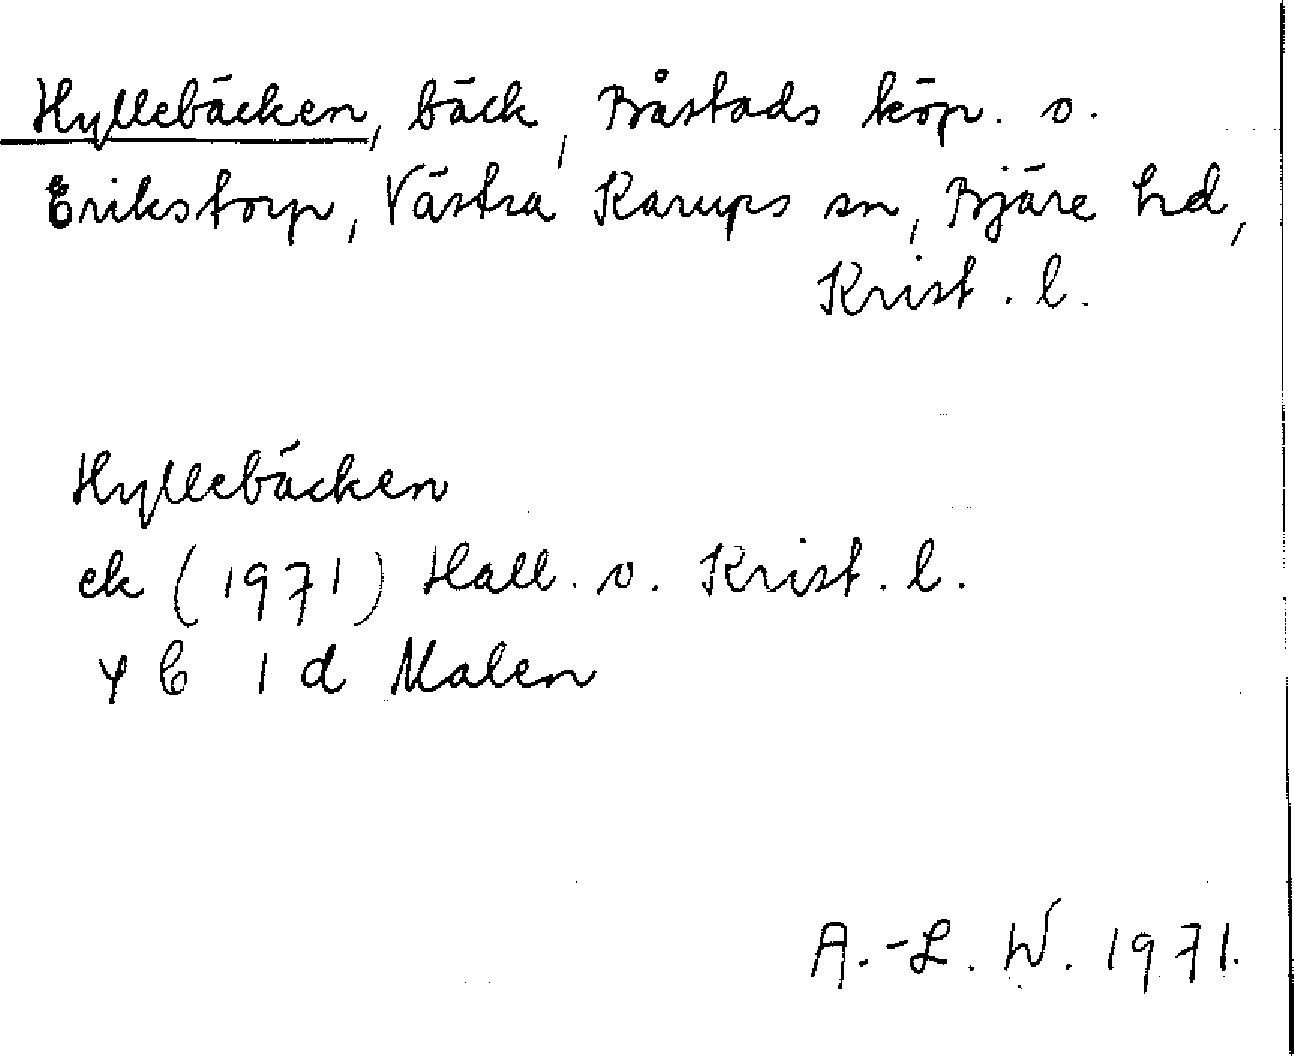 Hyllebäcken, bäck, Båstads köp. o.
Erikstorp, Västra Karups sn, Bjäre hd,
Krist. l.
Hyllebäcken
ek (1971) Hall. o. Krist. l.
4 C 1 d Malen
A.-L. W. 1971.